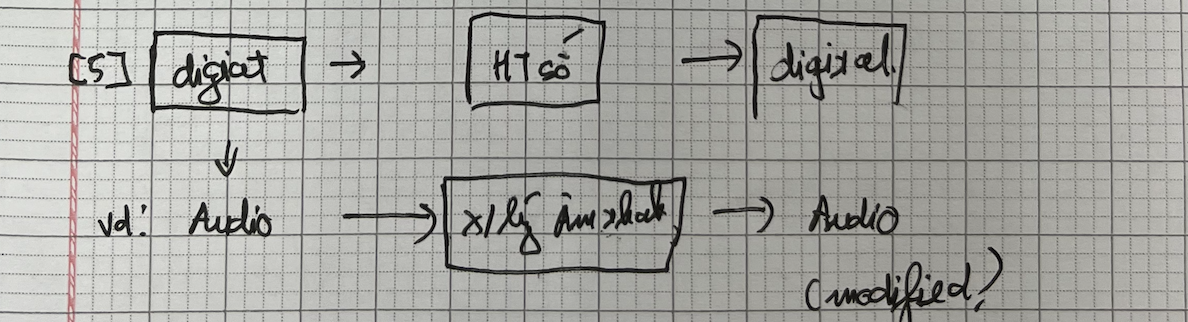 [5] digiat → HT số → digital.
↓
vd: Audio → x/lý âm thanh → Audio
(modified)